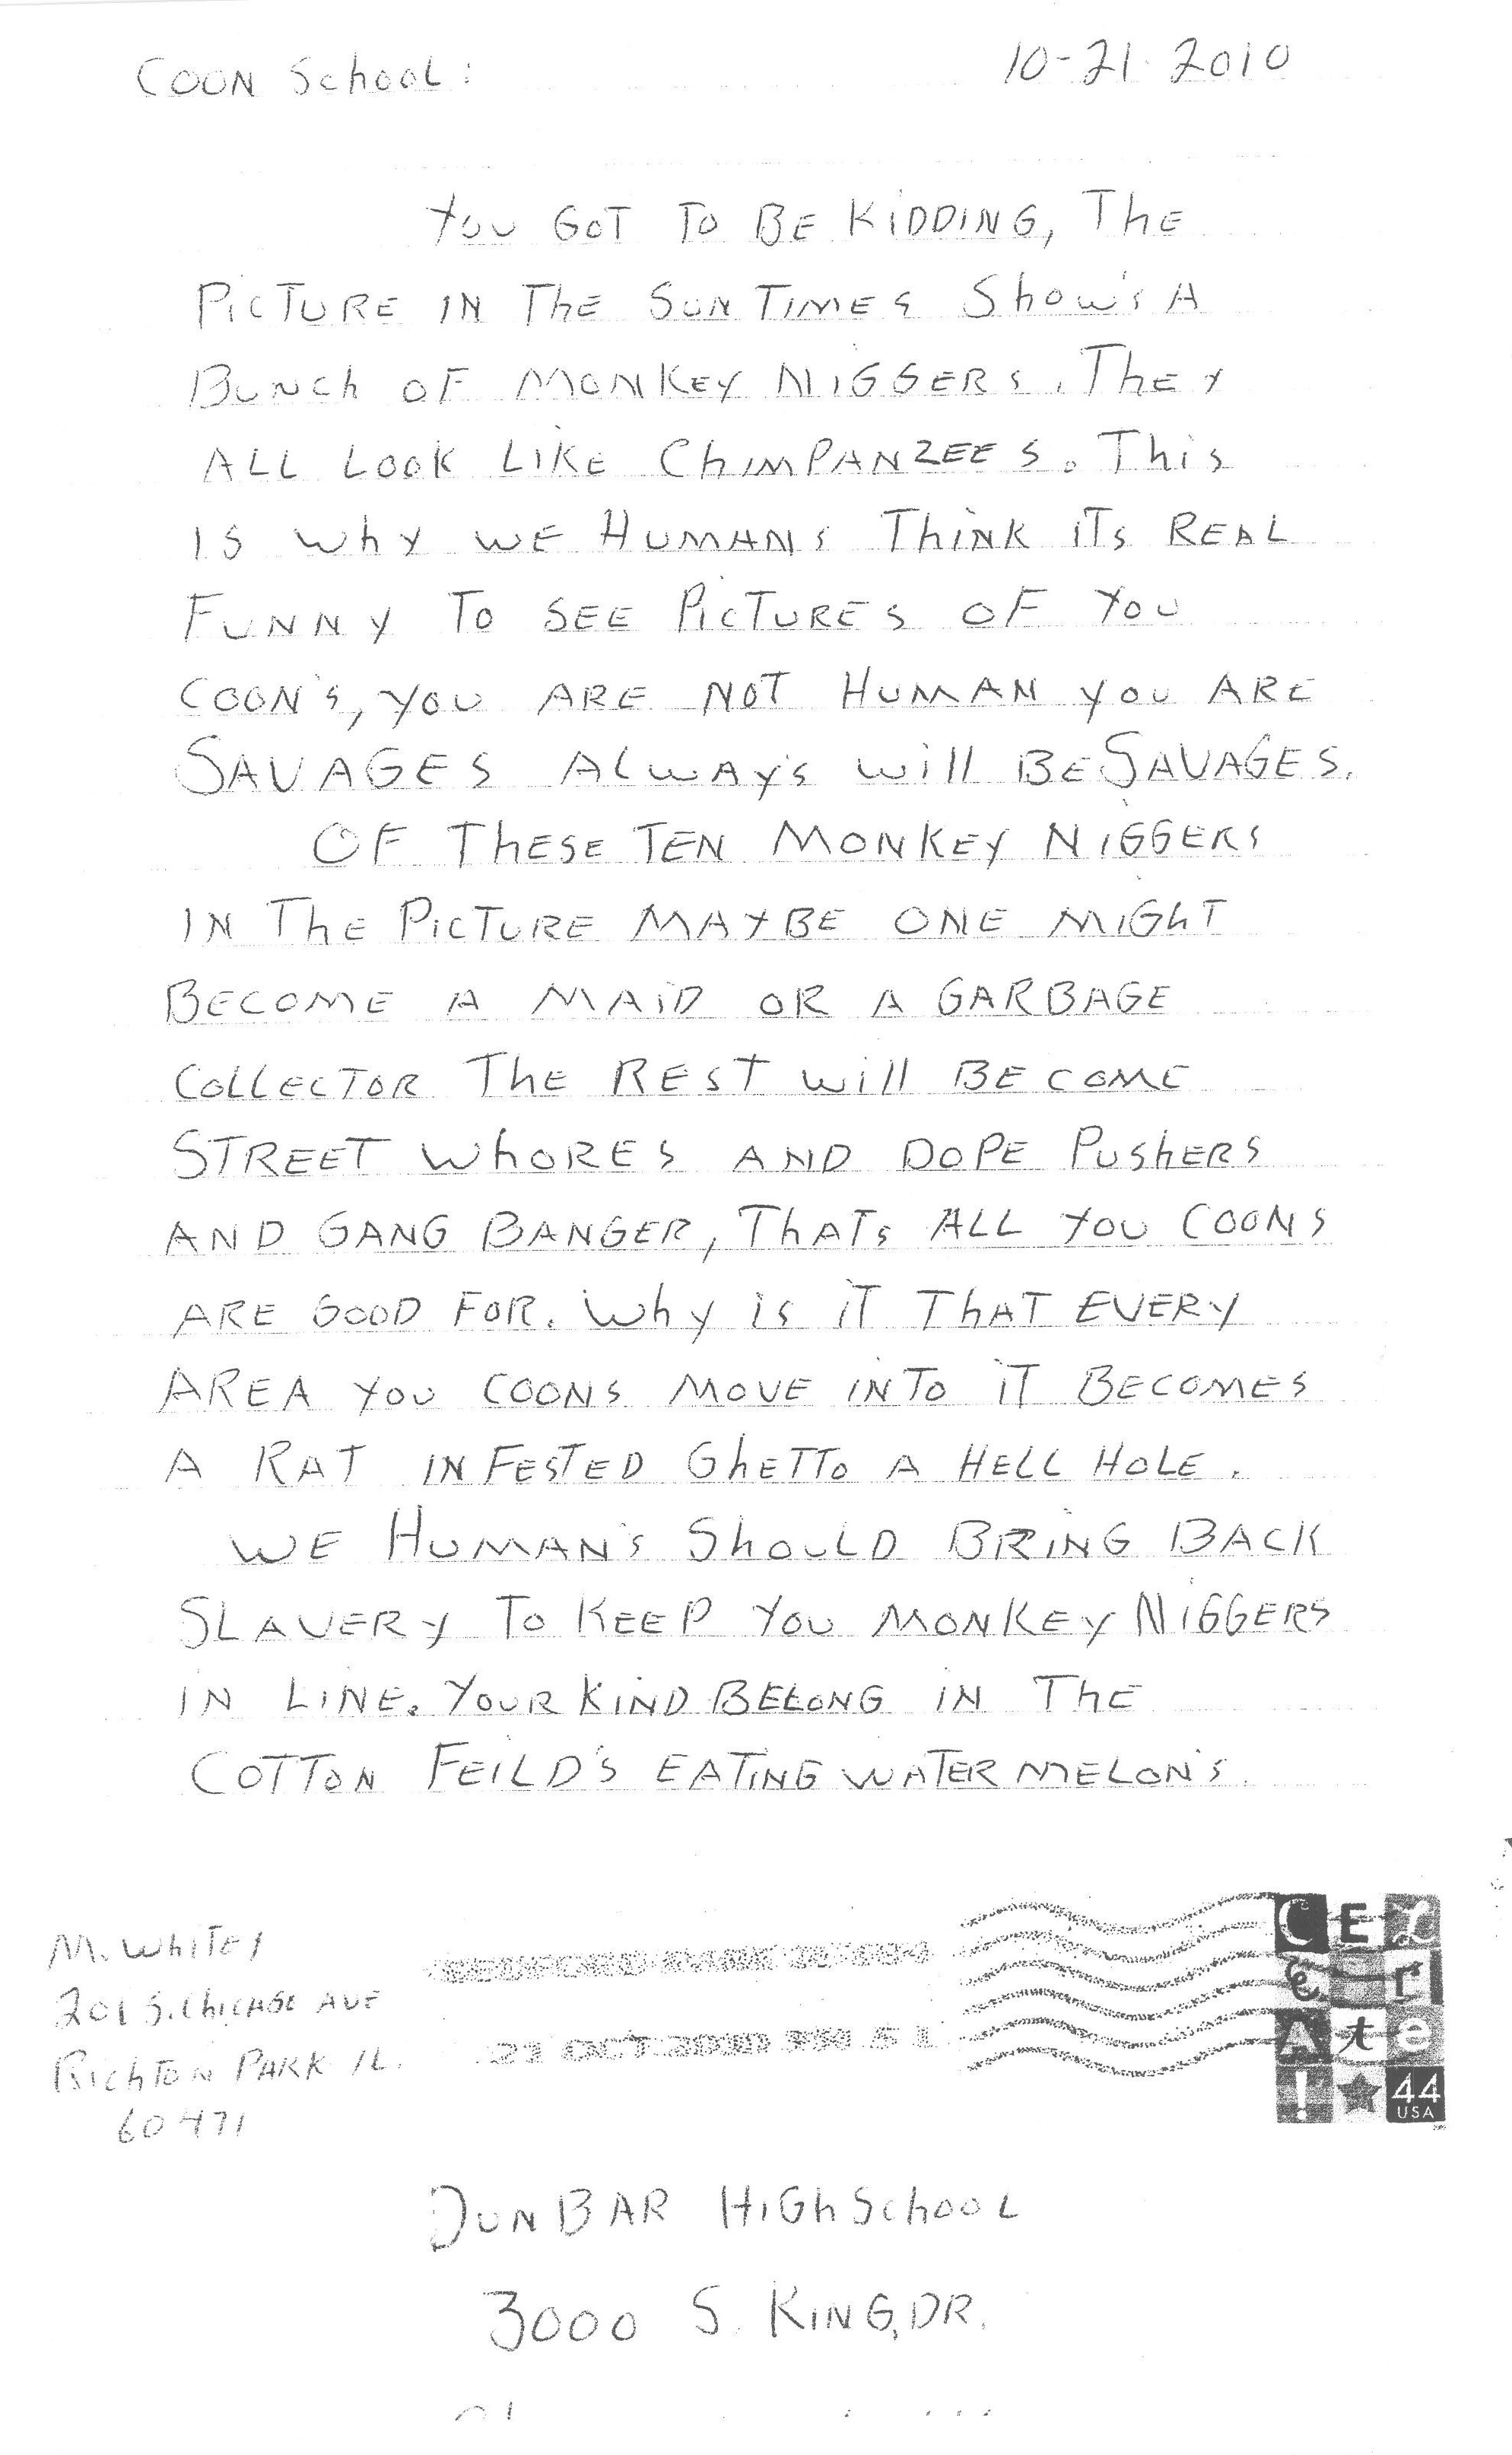 COON SchooL: 10-21-2010
YOU GOT TO BE KiDDING, ThE
PicTURE IN ThE SUN TIMES Show's A
BUNch OF MONKEY NIGGERS. ThEY
ALL LOOK LIKE ChIMPANZEES. This
IS Why WE HUMANS ThiNK iTs REAL
FUNNY TO SEE PicTURES OF YOU
COON'S, YOU ARE NOT HUMAN YOU ARE
SAVAGES ALWAY'S will BE SAVAGES.
OF ThESE TEN MONKEY NIGGERS
IN ThE PicTURE MAYBE ONE MIGhT
BECOME A MAiD OR A GARBAGE
COLLECTOR ThE REST will BECOME
STREET WhORES AND DOPE PUShERS
AND GANG BANGER, ThATs ALL YOU COONS
ARE GOOD FOR. Why is iT ThAT EVERY
AREA YOU COONS MOVE INTO iT BECOMES
A RAT INFESTED GhETTO A HELL HOLE.
WE HUMAN'S ShOULD BRiNG BACK
SLAVERY TO KEEP YOU MONKEY NiGGERS
IN LINE. YOUR KIND BELONG IN ThE
COTTON FEILD'S EATING WATERMELON'S.
M. WhiTEY
201 S. ChICAGO AVE
RIChTON PARK IL.
60471
BEDFORD PARK IL 604
21 OCT 2010 PM 5 L
CELeBrAte!
44
USA
DUNBAR HiGh SchooL
3000 S. KING, DR.